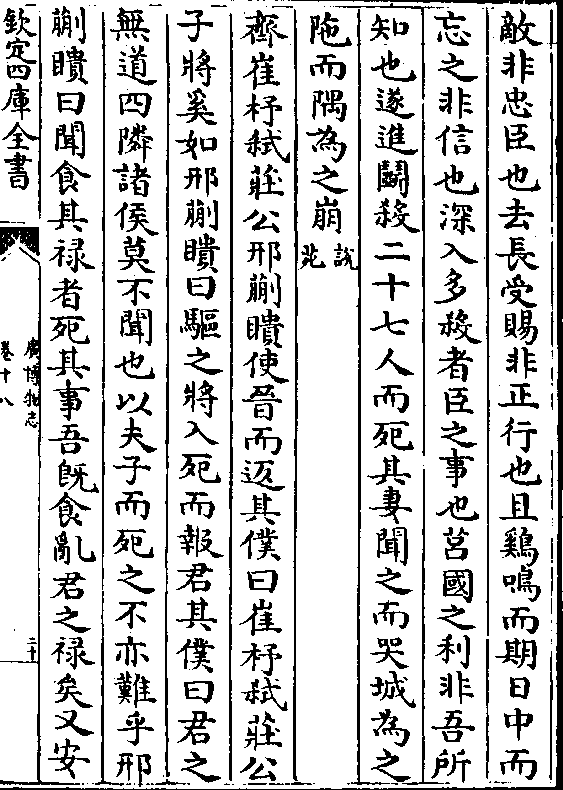 敵非忠臣也去長受賜非正行也且鷄鳴而期日中而
忘之非信也深入多殺者臣之事也莒國之利非吾所
知也遂進鬭殺二十七人而死其妻聞之而哭城為之
陁而隅為之崩說苑
齊崔杼弒莊公邢蒯瞶使晉而返其僕曰崔杼弒莊公
子將奚如邢蒯瞶曰驅之將入死而報君其僕曰君之
無道四隣諸侯莫不聞也以夫子而死之不亦難乎邢
蒯瞶曰聞食其祿者死其事吾旣食亂君之祿矣又安
欽定四庫全書
廣博物志
卷十八
二十